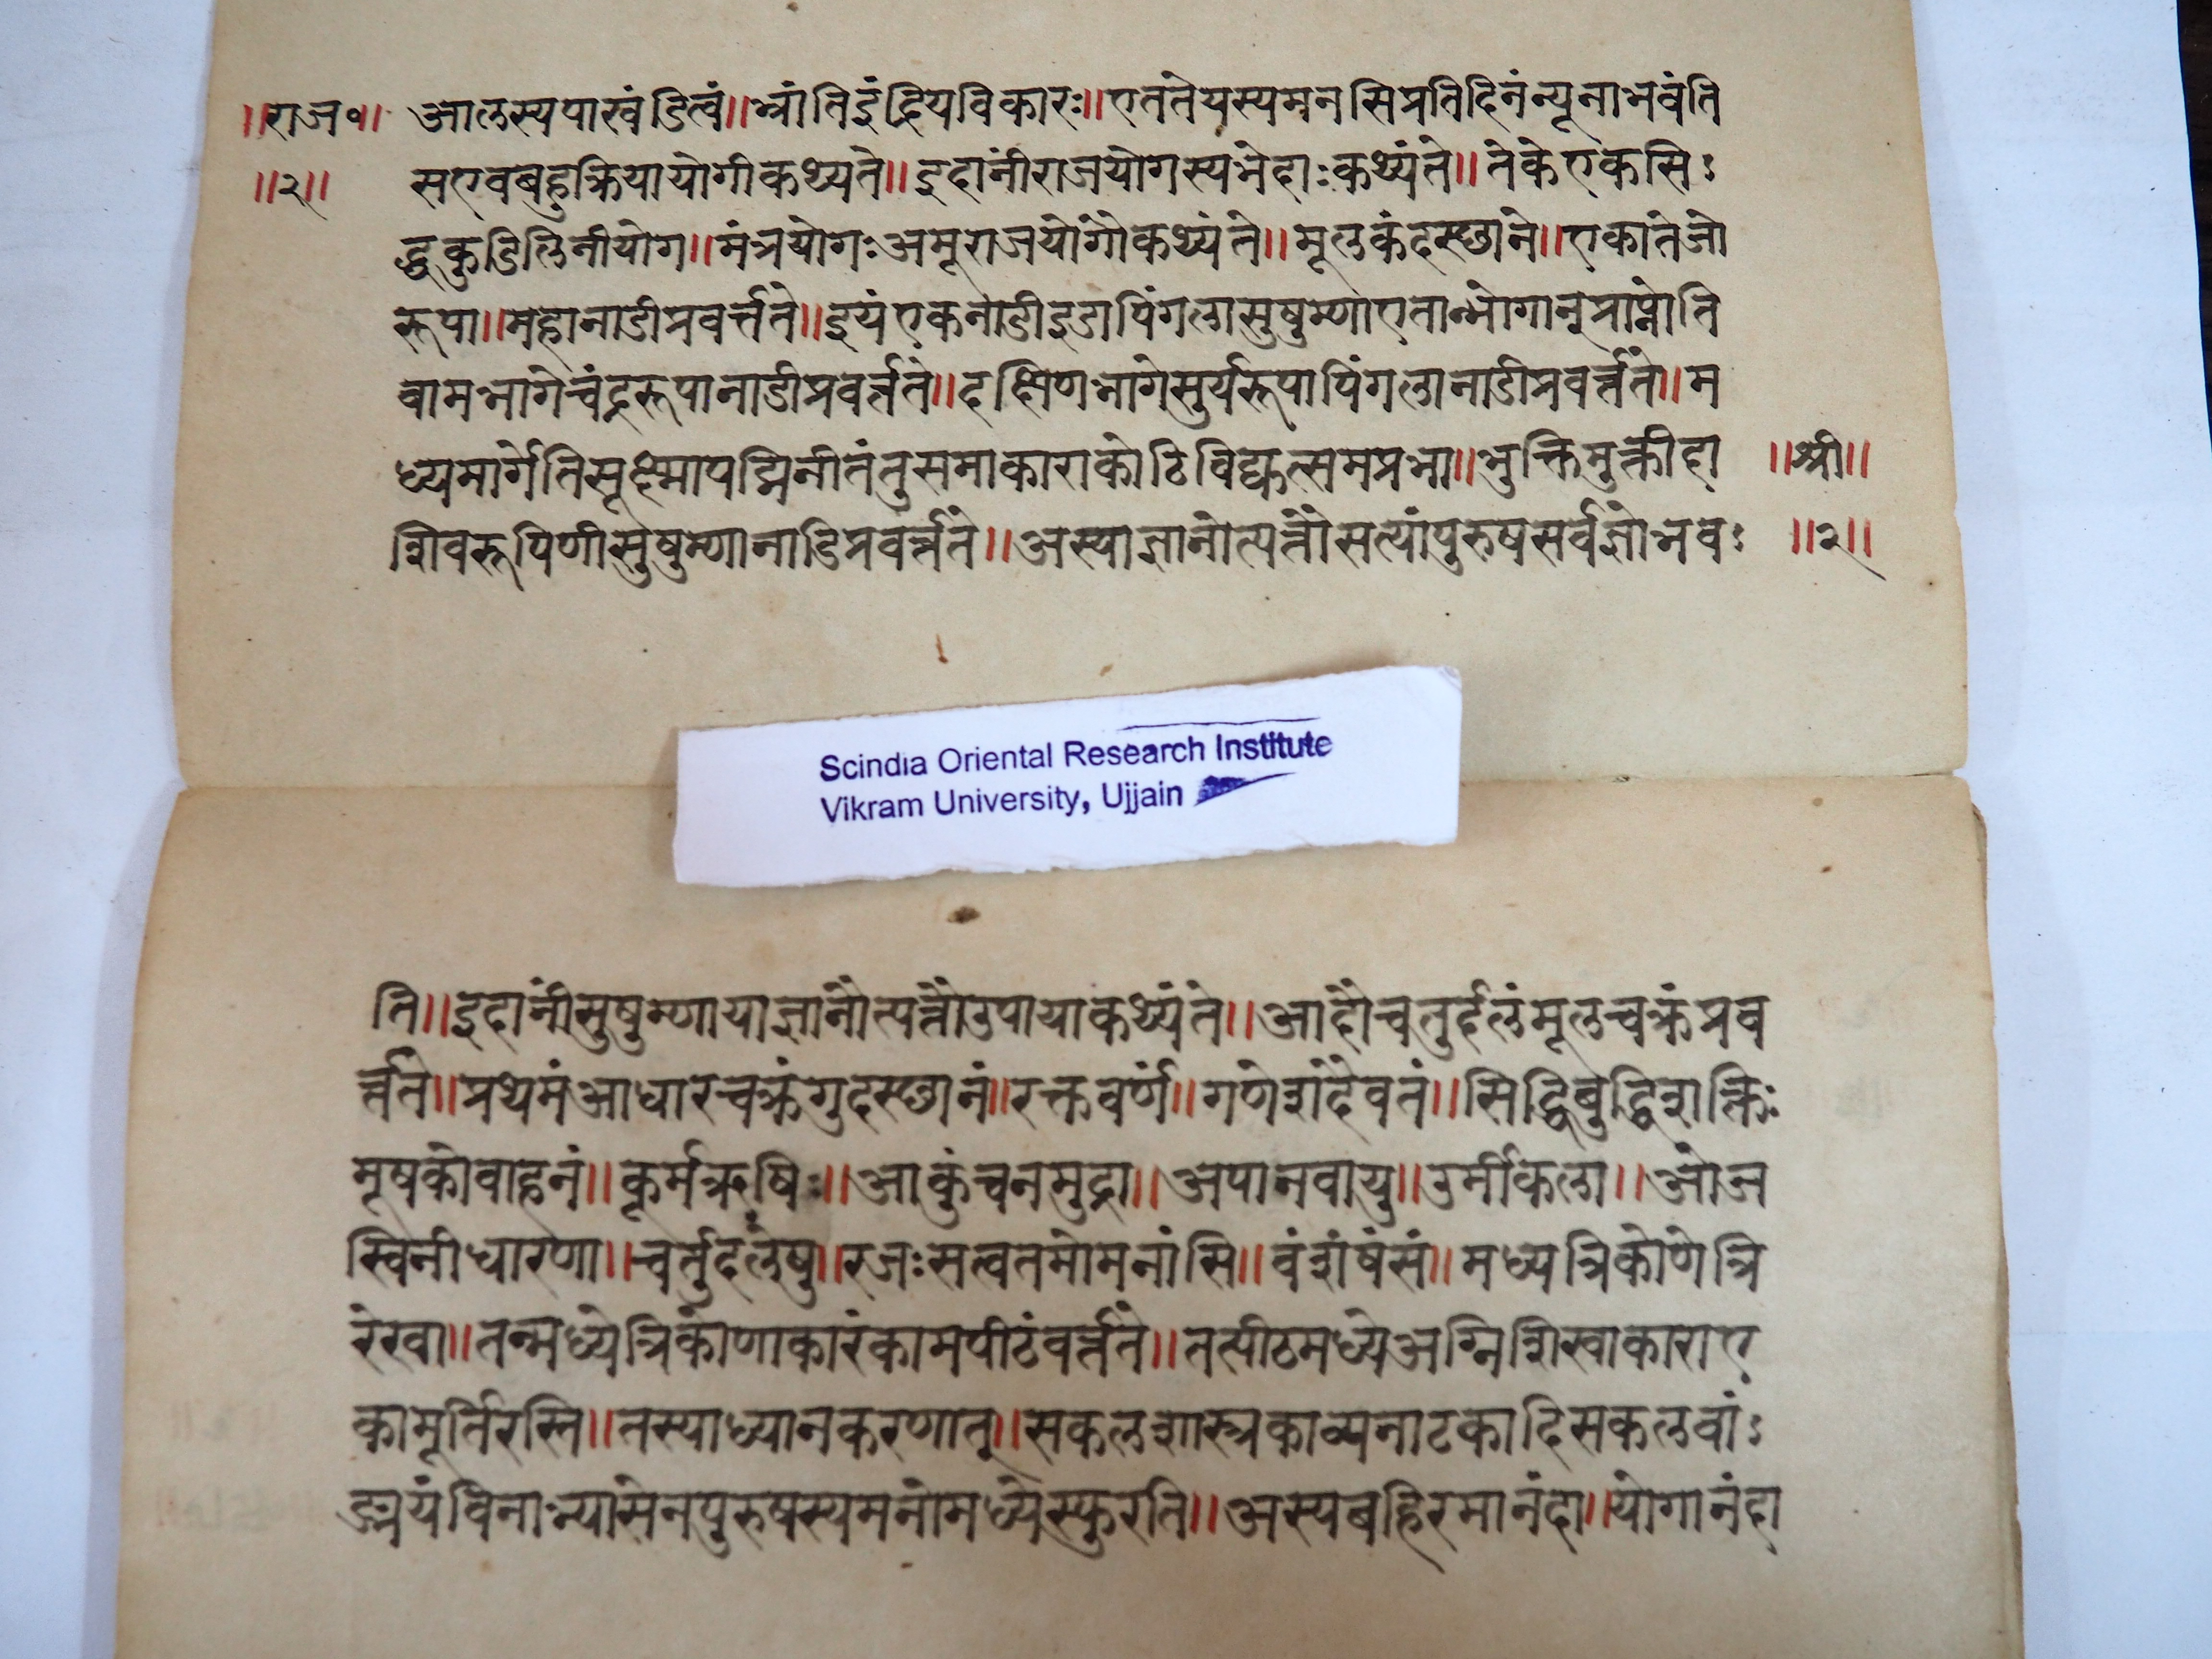 ॥राज॰॥ आलस्यपाखंडित्वं॥भ्रांतिइंद्रियविकारः॥एततेयस्यमनसिप्रतिदिनंन्यूनाभवंति
॥२॥ सएवबहुक्रियायोगीकथ्यते॥इदानींराजयोगस्यभेदाःकथ्यंते॥तेकेएकसि
द्धकुडिलिनीयोग॥मंत्रयोगःअमूराजयोगोकथ्यंते॥मूलकंदस्छाने॥एकातेजो
रूपा॥महानाडीप्रवर्त्तते॥इयंएकनाडीइडापिंगलासुषुम्णाएतान्भोगानुप्राप्नोति
वामभागेचंद्ररूपानाडीप्रवर्त्तते॥दक्षिणभागेसुर्यरूपापिंगलानाडीप्रवर्त्तते॥म
ध्यमार्गेतिसूक्ष्मापद्मिनीतंतुसमाकाराकोटिविद्युत्समप्रभा॥भुक्तिमुक्तीदा ॥श्री॥
शिवरूपिणीसुषुम्णानाडिप्रवर्त्तते॥अस्याज्ञानोत्पत्तौसत्यांपुरुषसर्वज्ञोभव ॥२॥
Scindia Oriental Research Institute
Vikram University, Ujjain
ति॥इदानींसुषुम्णायाज्ञानोत्पत्तौउपायाकथ्यंते॥आदौचतुर्दलंमूलचक्रंप्रव
र्त्तते॥प्रथमंआधारचक्रंगुदस्छानं॥रक्तवर्णं॥गणेशंदैवतं॥सिद्धिबुद्धिशक्तिः
मूषकोवाहनं॥कूर्मऋषिः॥आकुंचनमुद्रा॥अपानवायु॥उर्मीकला॥ओज
स्विनीधारणा॥चर्तुदलेषु॥रजःसत्वतमोमनांसि॥वंशंषंसं॥मध्यत्रिकोणेत्रि
रेखा॥तन्मध्येत्रिकोणाकारंकामपीठंवर्त्तते॥तत्पीठमध्येअग्निशिखाकाराए
कामूर्तिरस्ति॥तस्याध्यानकरणात्॥सकलशास्त्रकाव्यनाटकादिसकलवां
ङ्मयंविनाभ्यासेनपुरुषस्यमनोमध्येस्फुरति॥अस्यबहिरमानंदा॥योगानंदा